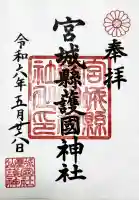 奉拝
宮城縣護國神社
令和八年五月廿八日
宮城縣